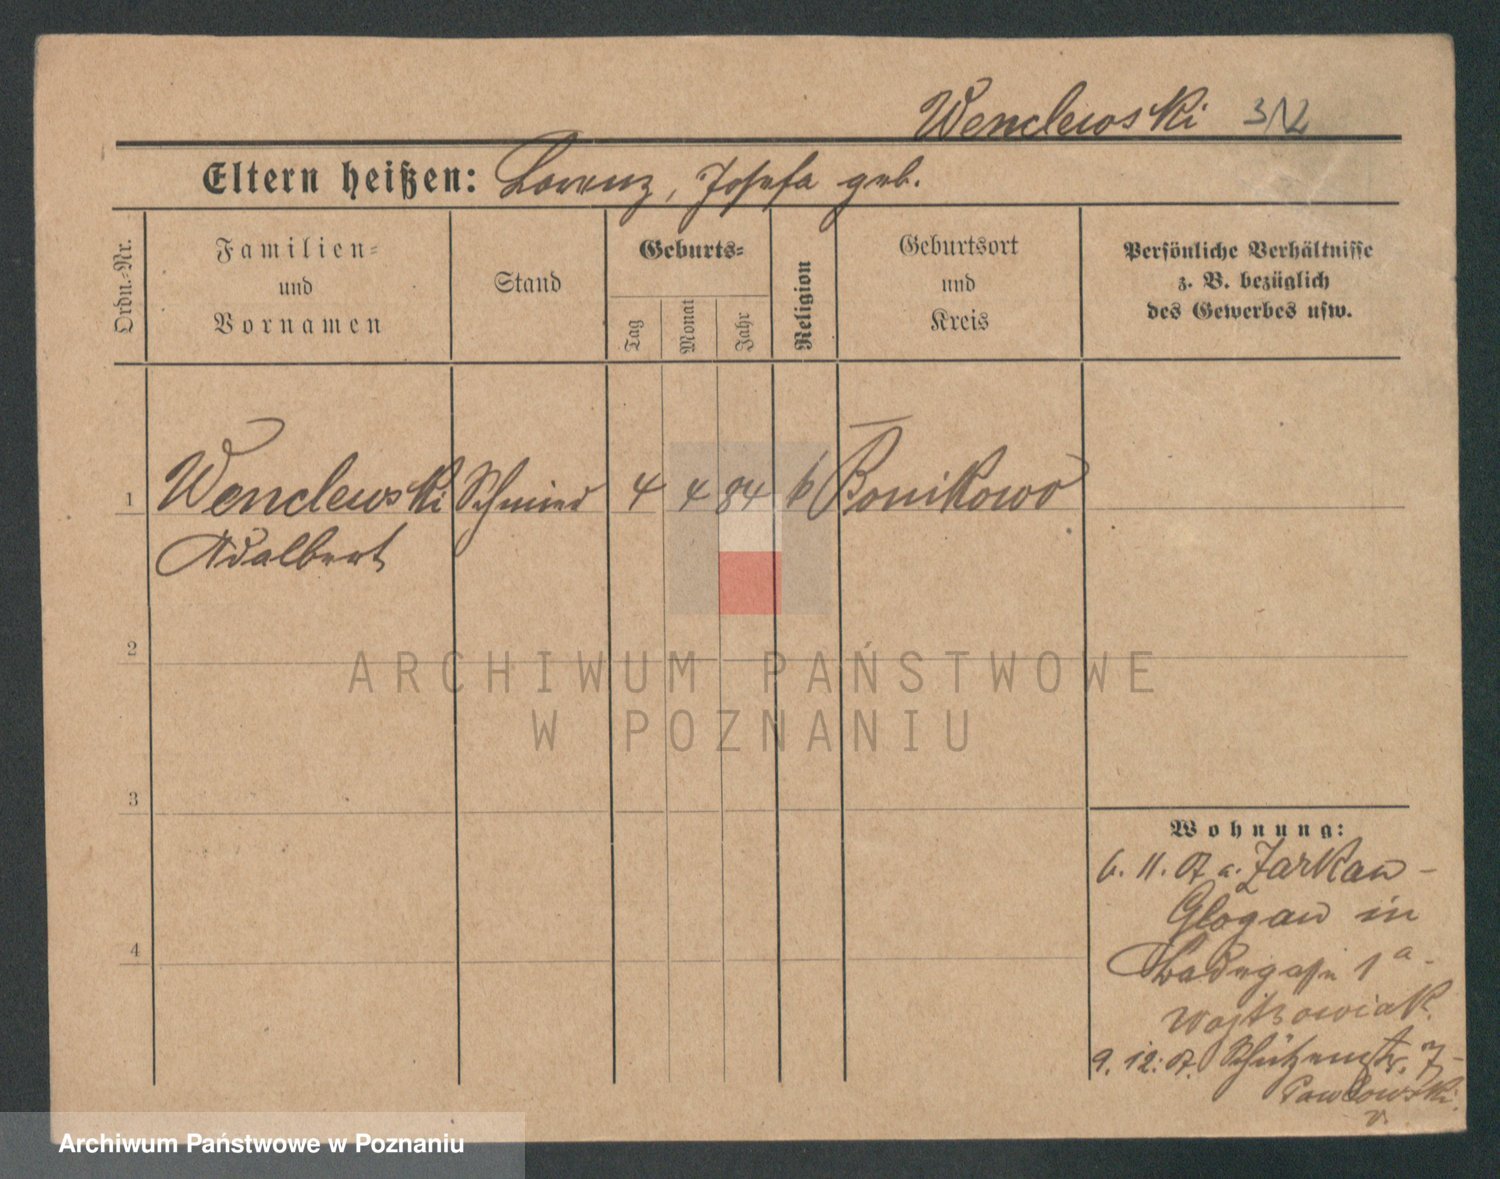 Wenclewski 312
Eltern heißen: Lorenz, Josefa geb.
Ordn.-Nr.
Familien-
und
Vornamen
Stand
Geburts-
Tag
Monat
Jahr
Religion
Geburtsort
und
Kreis
Persönliche Verhältnisse
z. B. bezüglich
des Gewerbes usw.
1 Wenclewski Schmied 4 4 84 k Bonikowo
Adalbert
2
3
4
Wohnung:
6. 11. Zarkau-
Glogau in
Badegasse 1a
9. 12. Schützenstr. 7
Pawlowski
ARCHIWUM PAŃSTWOWE
W POZNANIU
Archiwum Państwowe w Poznaniu